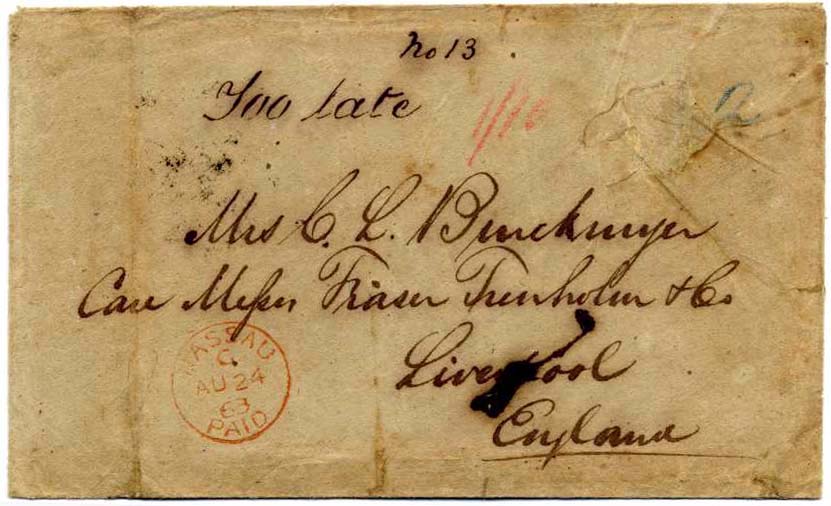 No 13
Too late
1/10
2
Mrs C. L. Burckmyer
Care Messrs Fraser Trenholm & Co
Liverpool
England
NASSAU
C
AU 24
63
PAID